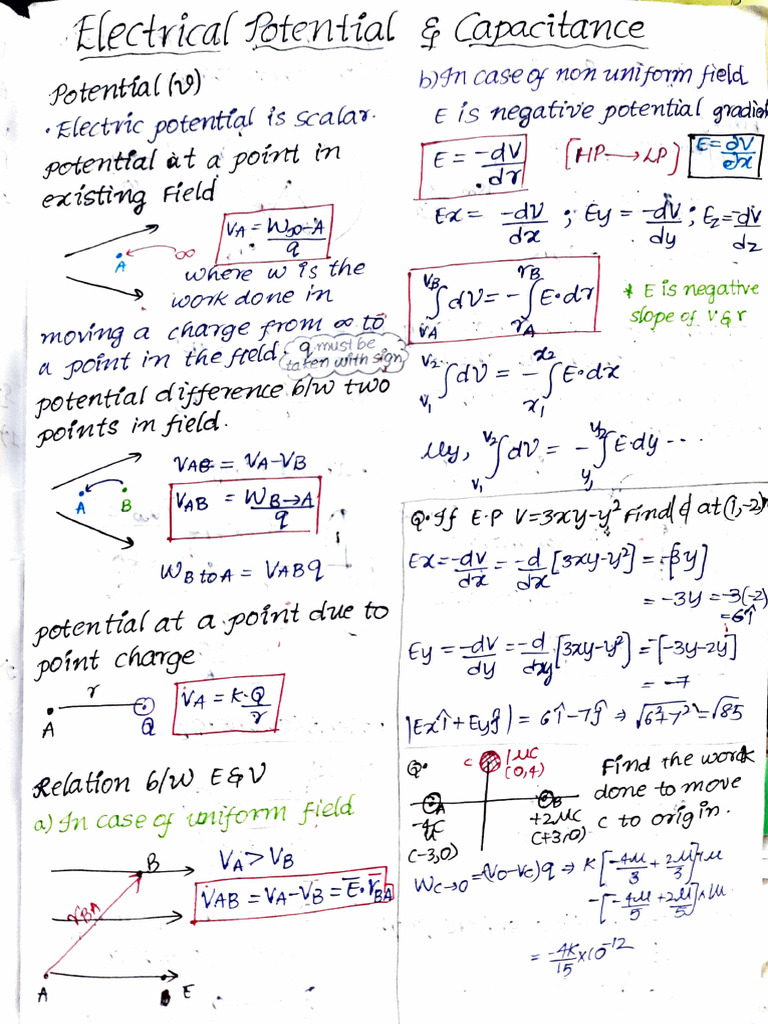 Electrical Potential & Capacitance
Potential (v)
• Electric potential is scalar.
potential at a point in
existing Field
A
∞
VA = W∞→A / q
where w is the
work done in
moving a charge from ∞ to
a point in the field.
q must be
taken with sign
potential difference b/w two
points in field.
A B
VAB = VA-VB
VAB = WB→A / q
WB to A = VABq
potential at a point due to
point charge
r
A
Q
VA = K·Q / r
Relation b/w E & V
a) In case of uniform field
B
VA > VB
VAB = VA-VB = E·rBA
rBA
A
E
b) In case of non uniform field
E is negative potential gradien
E = -dV / dr
[HP → LP]
E = dV / dx
Ex = -dV / dx ; Ey = -dV / dy ; Ez = -dV / dz
VB ∫ VA dV = - rB ∫ rA E·dr
* E is negative
slope of V & r
V2 ∫ V1 dV = - x2 ∫ x1 E·dx
llly, V2 ∫ V1 dV = - y2 ∫ y1 E·dy ...
Q. If E.P V=3xy-y² Find at (1,-2)
Ex = -dV / dx = -d / dx [3xy-y²] = -[3y]
= -3y = -3(-2)
= 6î
Ey = -dV / dy = -d / dy [3xy-y²] = -[-3y-2y]
= -7
|Exî + Eyĵ| = 6î-7ĵ ⇒ √6²7² = √85
Q.
C
1μC
(0,4)
A
B
-4μC
(-3,0)
+2μC
(+3,0)
Find the work
done to move
C to origin.
WC→0 = (V0-VC)q ⇒ K[-4μ / 3 + 2μ / 3]×1μ
-[-4μ / 5 + 2μ / 5]×1μ
= -4K / 15 ×10⁻¹²